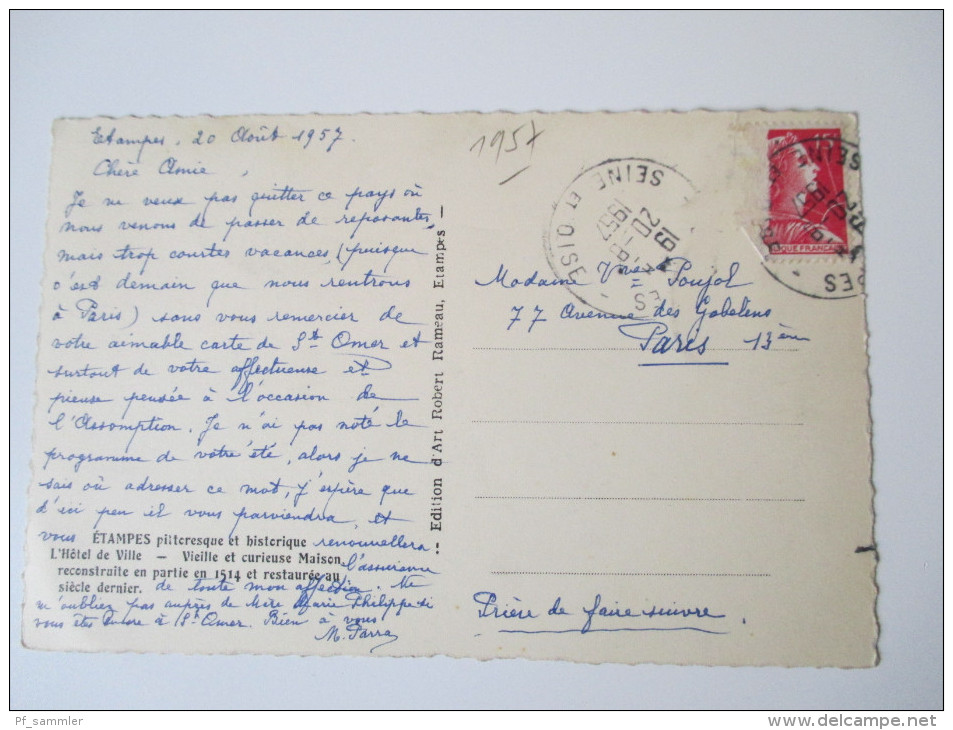 Etampes, 20 Août 1957.
Chère Amie,
Je ne veux pas quitter ce pays où
nous venons de passer de reposantes,
mais trop courtes vacances, (puisque
c'est demain que nous rentrons
à Paris) sans vous remercier de
votre aimable carte de St Omer et
surtout de votre affectueuse et
pieuse pensée à l'occasion de
l'Assomption. Je n'ai pas noté le
programme de votre été, alors je ne
sais où adresser ce mot, j'espère que
d'ici peu il vous parviendra, et
vous renouvellera
l'assurance
de toute mon affection. Ne
m'oubliez pas auprès de Mère Marie Philippe si
vous êtes encore à St Omer. Bien à vous
M. Parra
ÉTAMPES pittoresque et historique
L'Hôtel de Ville — Vieille et curieuse Maison,
reconstruite en partie en 1514 et restaurée au
siècle dernier.
Edition d'Art Robert Rameau, Etampes —
1957
SEINE ET OISE
19H
20-8
1957
15F
SEINE
QUE FRANÇAISE
PES
Madame Vve Poujol
77 Avenue des Gobelins
Paris 13ème
Prière de faire suivre.
Pf_sammler
www.delcampe.net